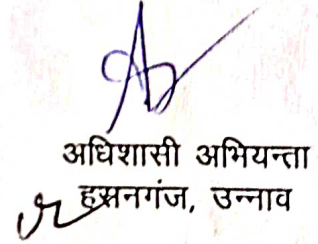 अधिशासी अभियन्ता
हसनगंज, उन्नाव